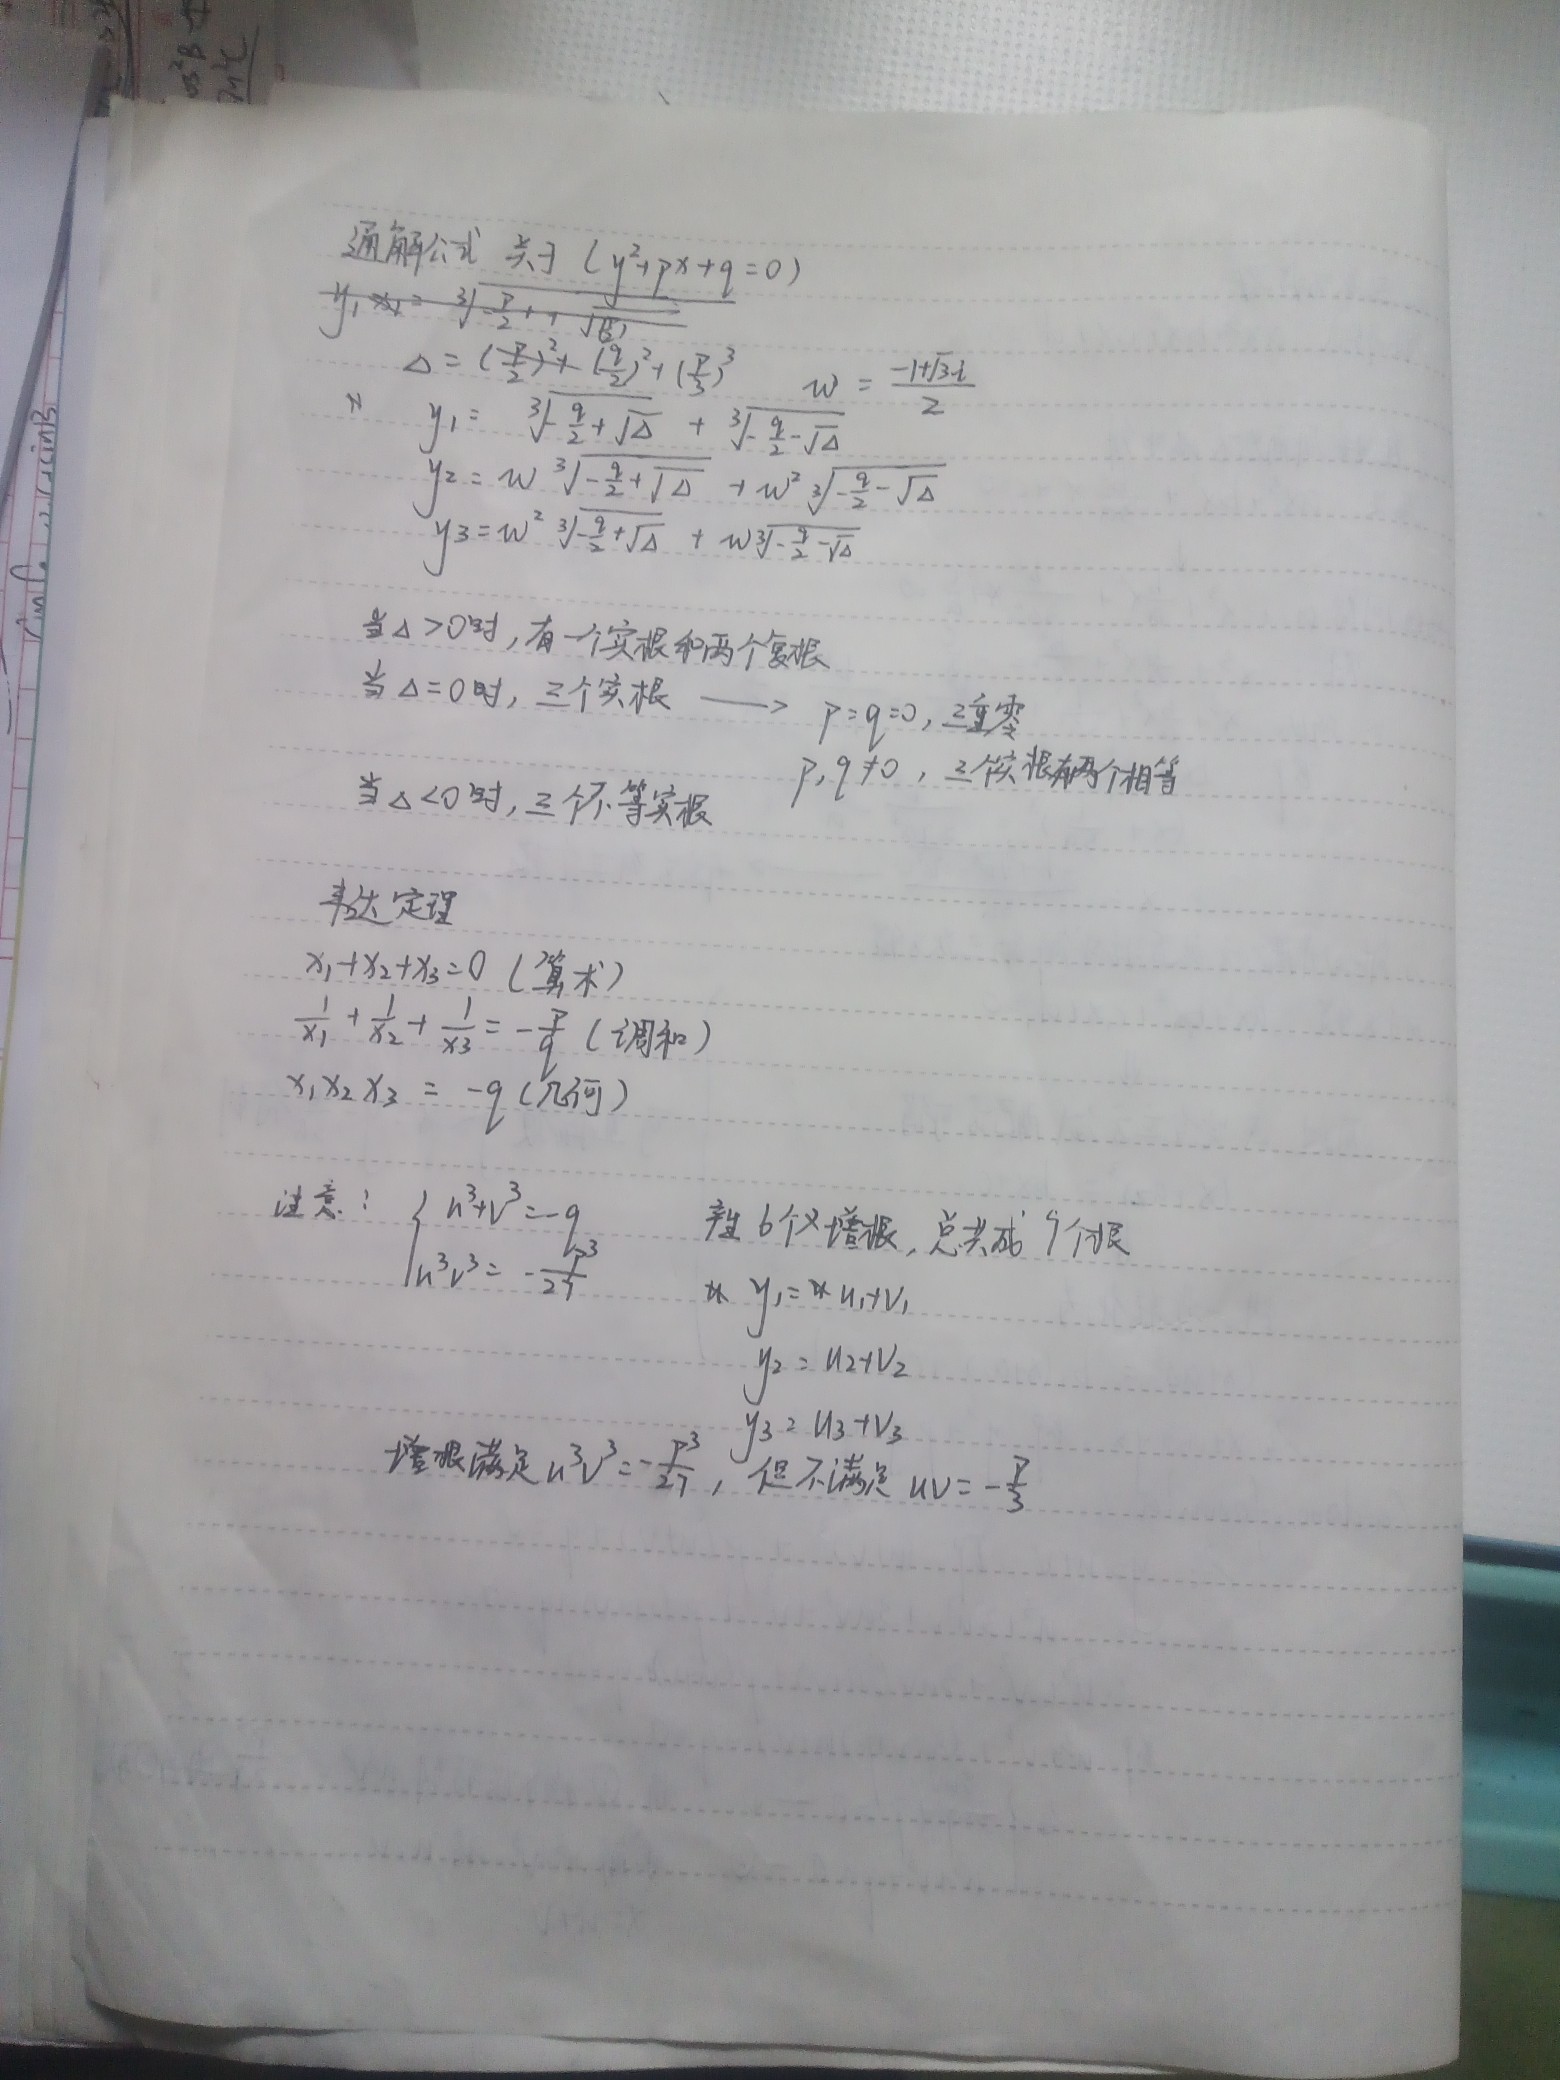 通解公式 关于 (y²+px+q=0)
Δ = (q/2)² + (p/3)³   w = (-1+√3i)/2
y₁ = ∛(-q/2+√Δ) + ∛(-q/2-√Δ)
y₂ = w∛(-q/2+√Δ) + w²∛(-q/2-√Δ)
y₃ = w²∛(-q/2+√Δ) + w∛(-q/2-√Δ)
当Δ>0时,有一个实根和两个复根
当Δ=0时,三个实根 → p=q=0,三重零
p,q≠0,三个实根有两个相等
当Δ<0时,三个不等实根
韦达定理
x₁+x₂+x₃=0(算术)
1/x₁+1/x₂+1/x₃=-p/q(调和)
x₁x₂x₃ = -q(几何)
注意: { u³+v³=-q   产生6个增根,总共成9个根
u³v³=-p³/27   y₁=u₁+v₁
y₂=u₂+v₂
y₃=u₃+v₃
增根满足u³v³=-p³/27,但不满足uv=-p/3